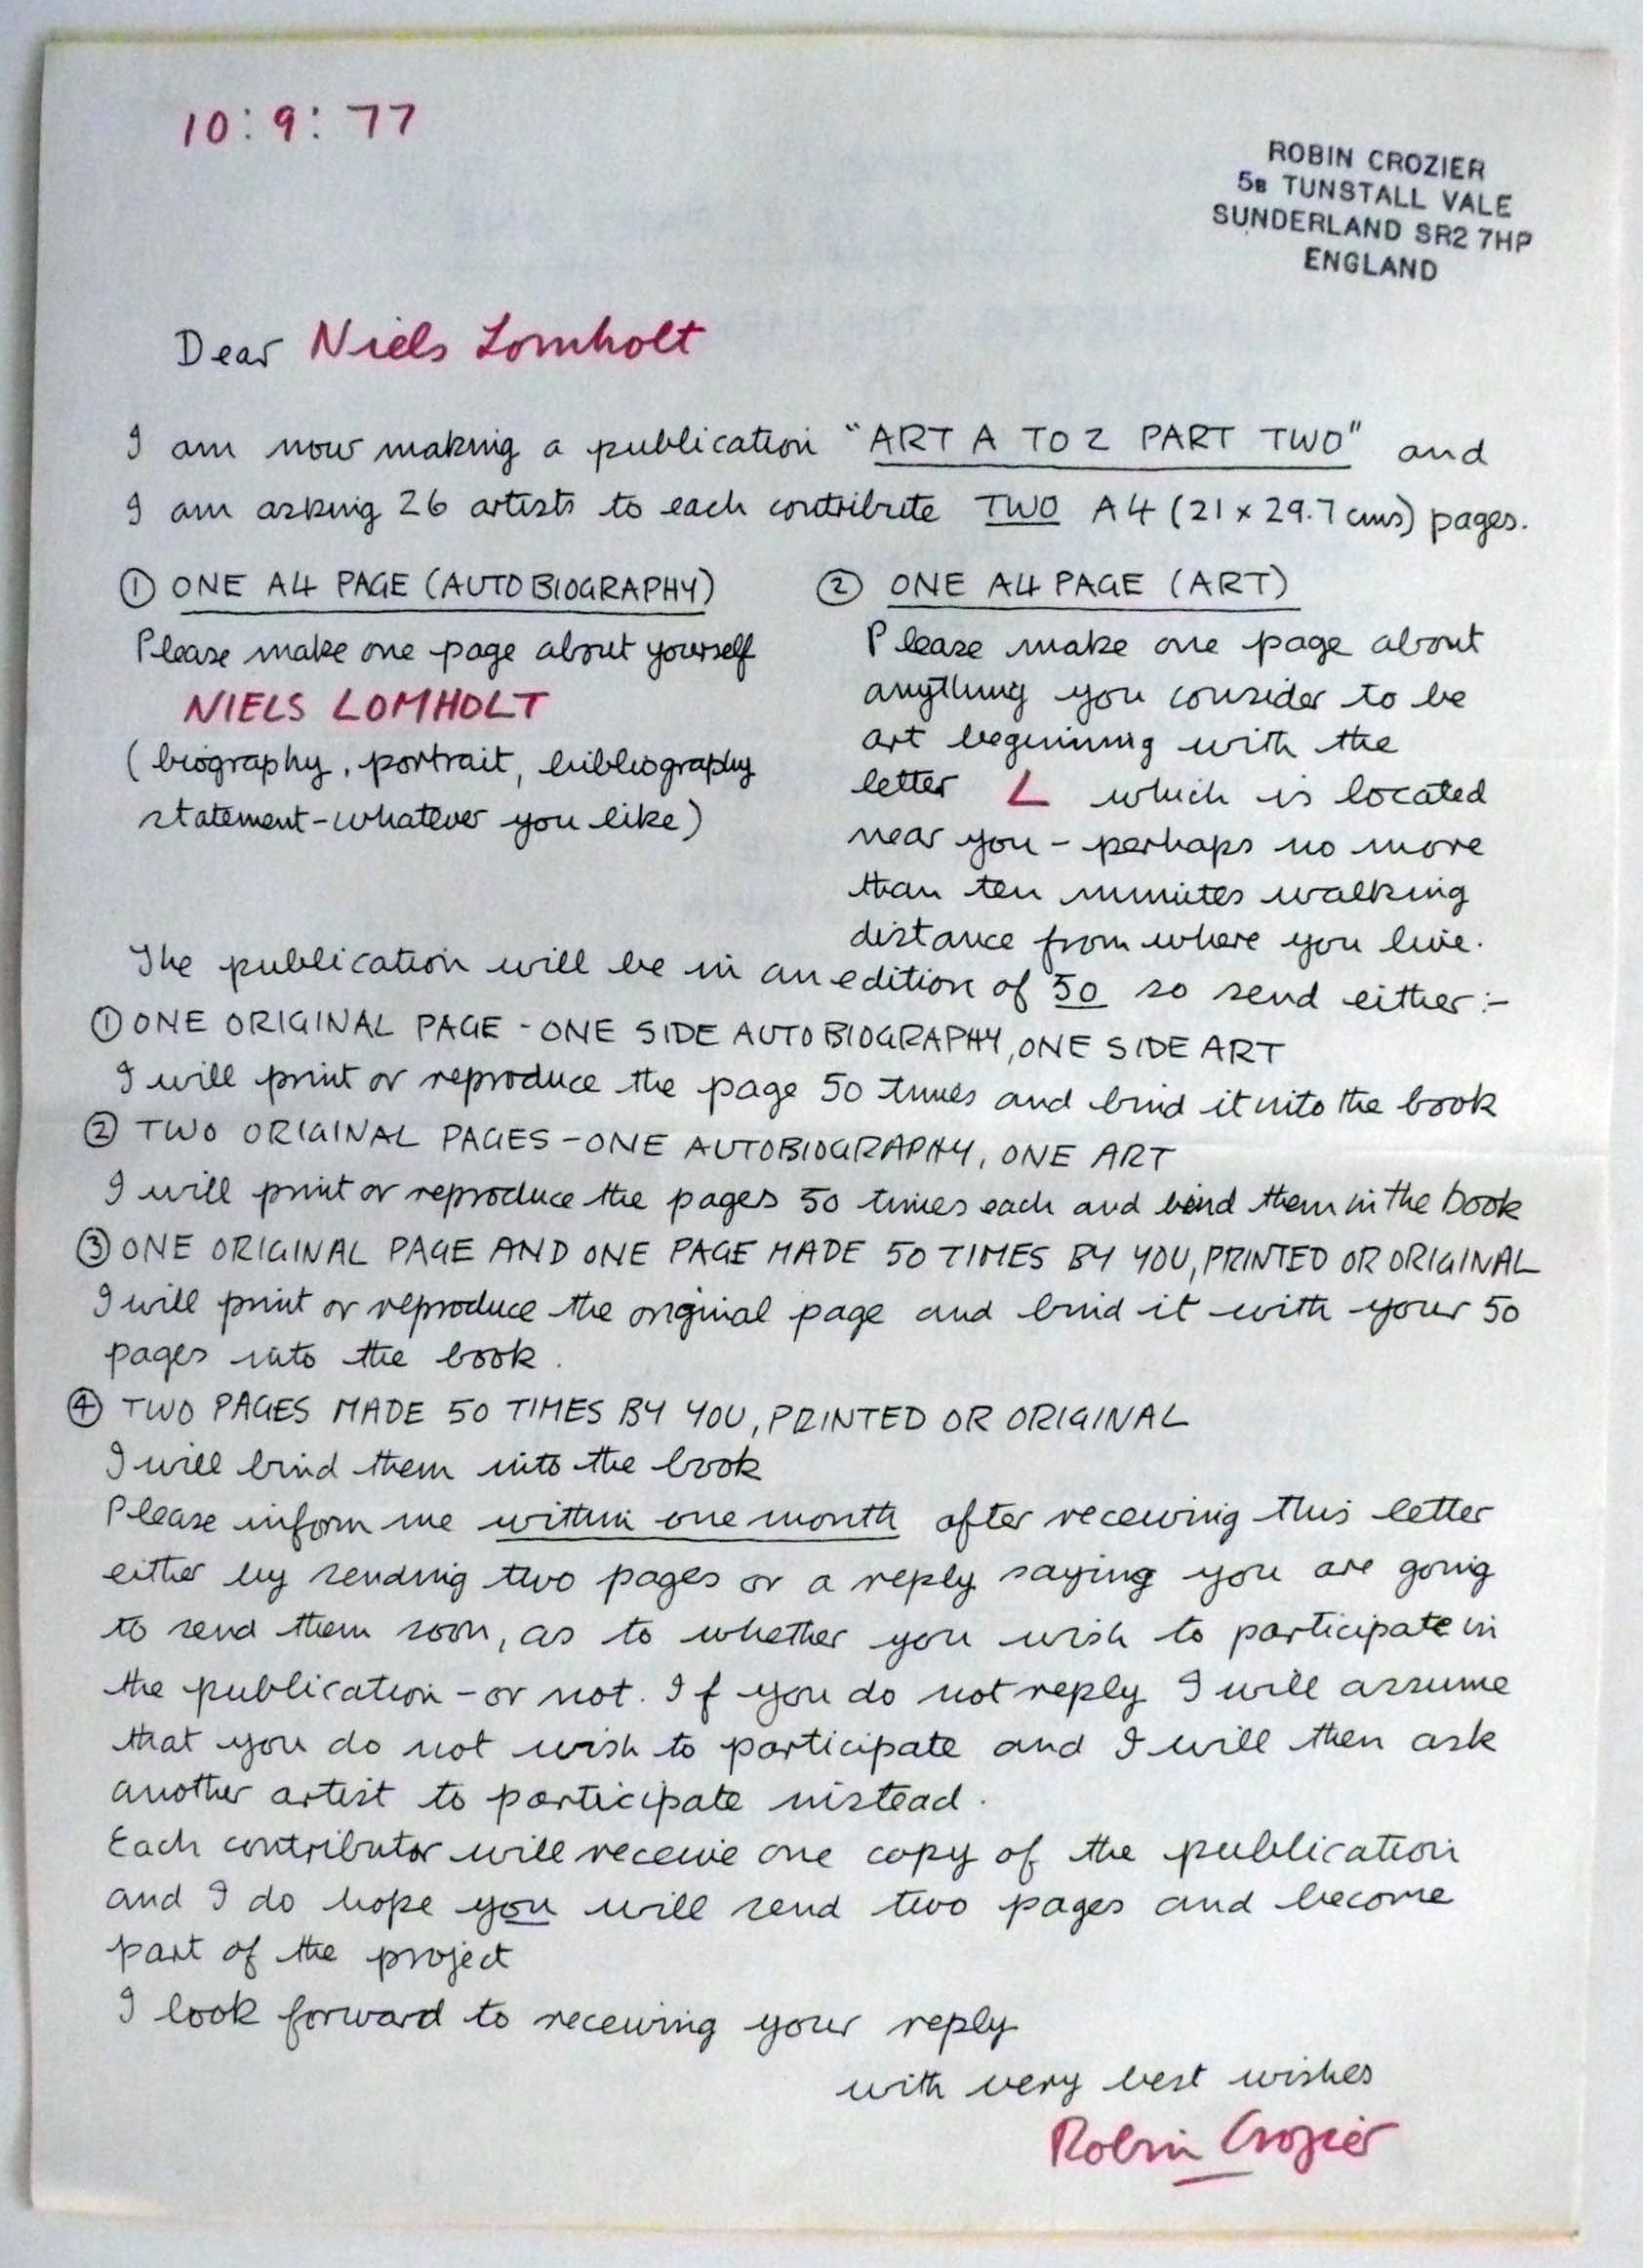 10:9:77
ROBIN CROZIER
5B TUNSTALL VALE
SUNDERLAND SR2 7HP
ENGLAND
Dear Niels Lomholt
I am now making a publication "ART A TO Z PART TWO" and
I am asking 26 artists to each contribute TWO A4 (21 x 29.7 cms) pages.
① ONE A4 PAGE (AUTOBIOGRAPHY)
Please make one page about yourself
NIELS LOMHOLT
(biography, portrait, bibliography
statement - whatever you like)
② ONE A4 PAGE (ART)
Please make one page about
anything you consider to be
art beginning with the
letter L which is located
near you - perhaps no more
than ten minutes walking
distance from where you live.
The publication will be in an edition of 50 so send either :-
① ONE ORIGINAL PAGE - ONE SIDE AUTOBIOGRAPHY, ONE SIDE ART
I will print or reproduce the page 50 times and bind it into the book
② TWO ORIGINAL PAGES - ONE AUTOBIOGRAPHY, ONE ART
I will print or reproduce the pages 50 times each and bind them in the book
③ ONE ORIGINAL PAGE AND ONE PAGE MADE 50 TIMES BY YOU, PRINTED OR ORIGINAL
I will print or reproduce the original page and bind it with your 50
pages into the book.
④ TWO PAGES MADE 50 TIMES BY YOU, PRINTED OR ORIGINAL
I will bind them into the book
Please inform me within one month after receiving this letter
either by sending two pages or a reply saying you are going
to send them soon, as to whether you wish to participate in
the publication - or not. If you do not reply I will assume
that you do not wish to participate and I will then ask
another artist to participate instead.
Each contributor will receive one copy of the publication
and I do hope you will send two pages and become
part of the project
I look forward to receiving your reply
with very best wishes
Robin Crozier